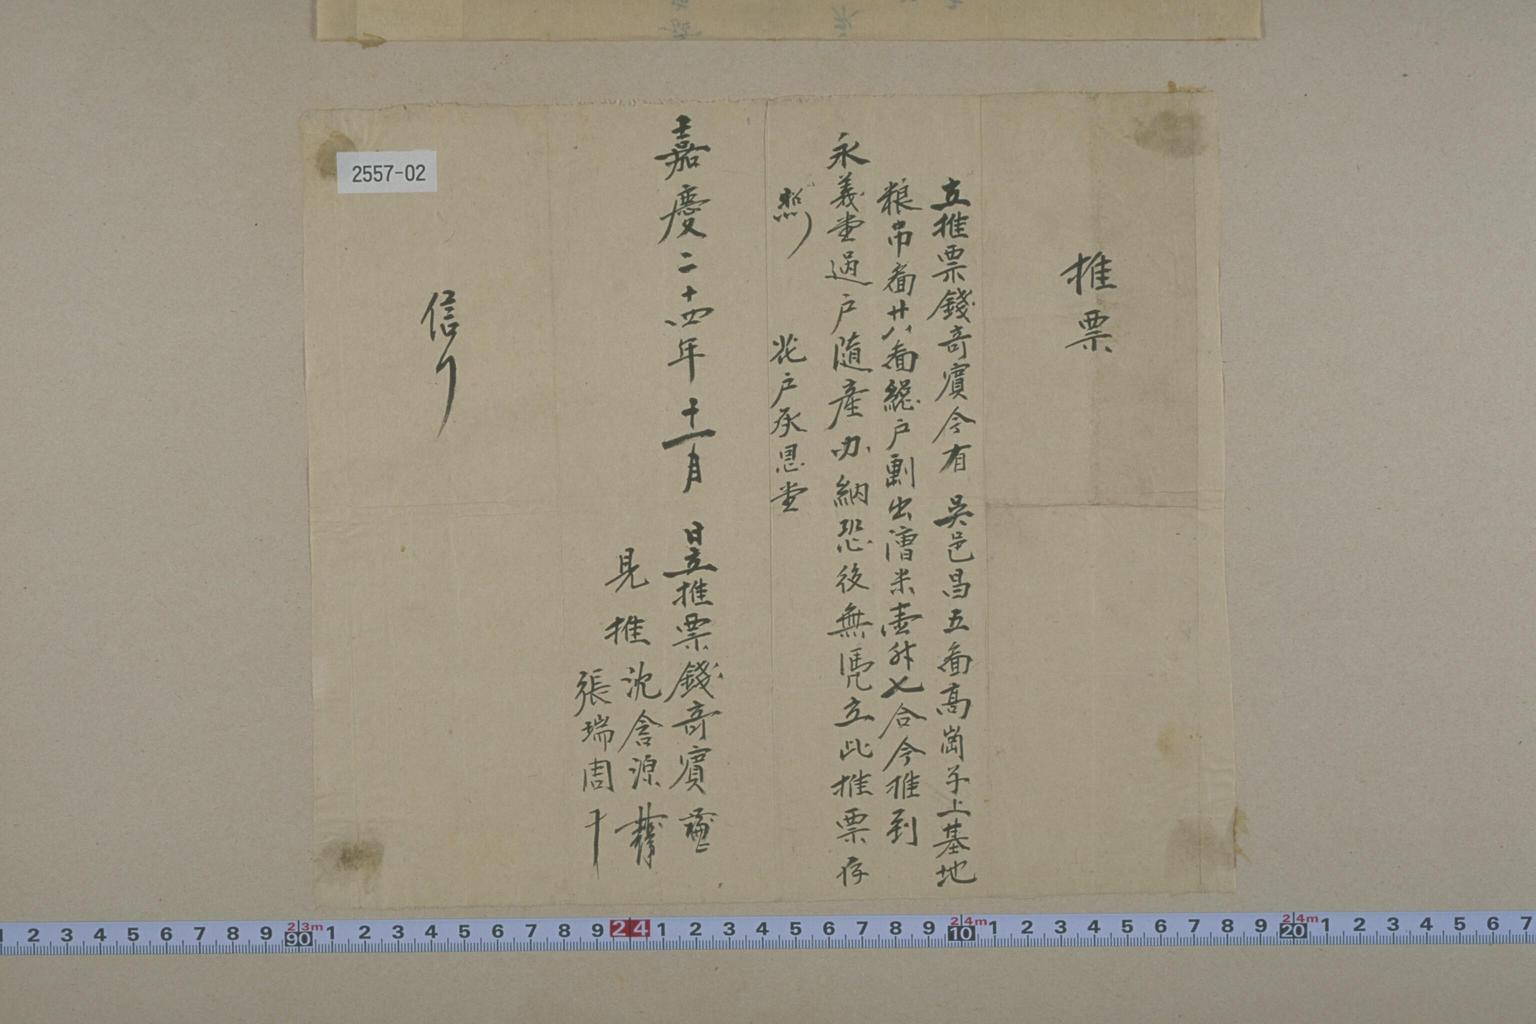 推票
立推票錢奇賔今有 吳邑昌五啚高崗子上基地
粮吊啚廿八啚總戶剰出漕米壹升七合今推到
永義堂過戶隨產办納恐後無憑立此推票存
照 花戶承恩堂
嘉慶二十四年十一月 日立推票錢奇賔
見推沈含源
張瑞周十
信
2557-02
1 2 3 4 5 6 7 8 9 90 1 2 3 4 5 6 7 8 9 24 1 2 3 4 5 6 7 8 9 10 1 2 3 4 5 6 7 8 9 20 1 2 3 4 5 6 7